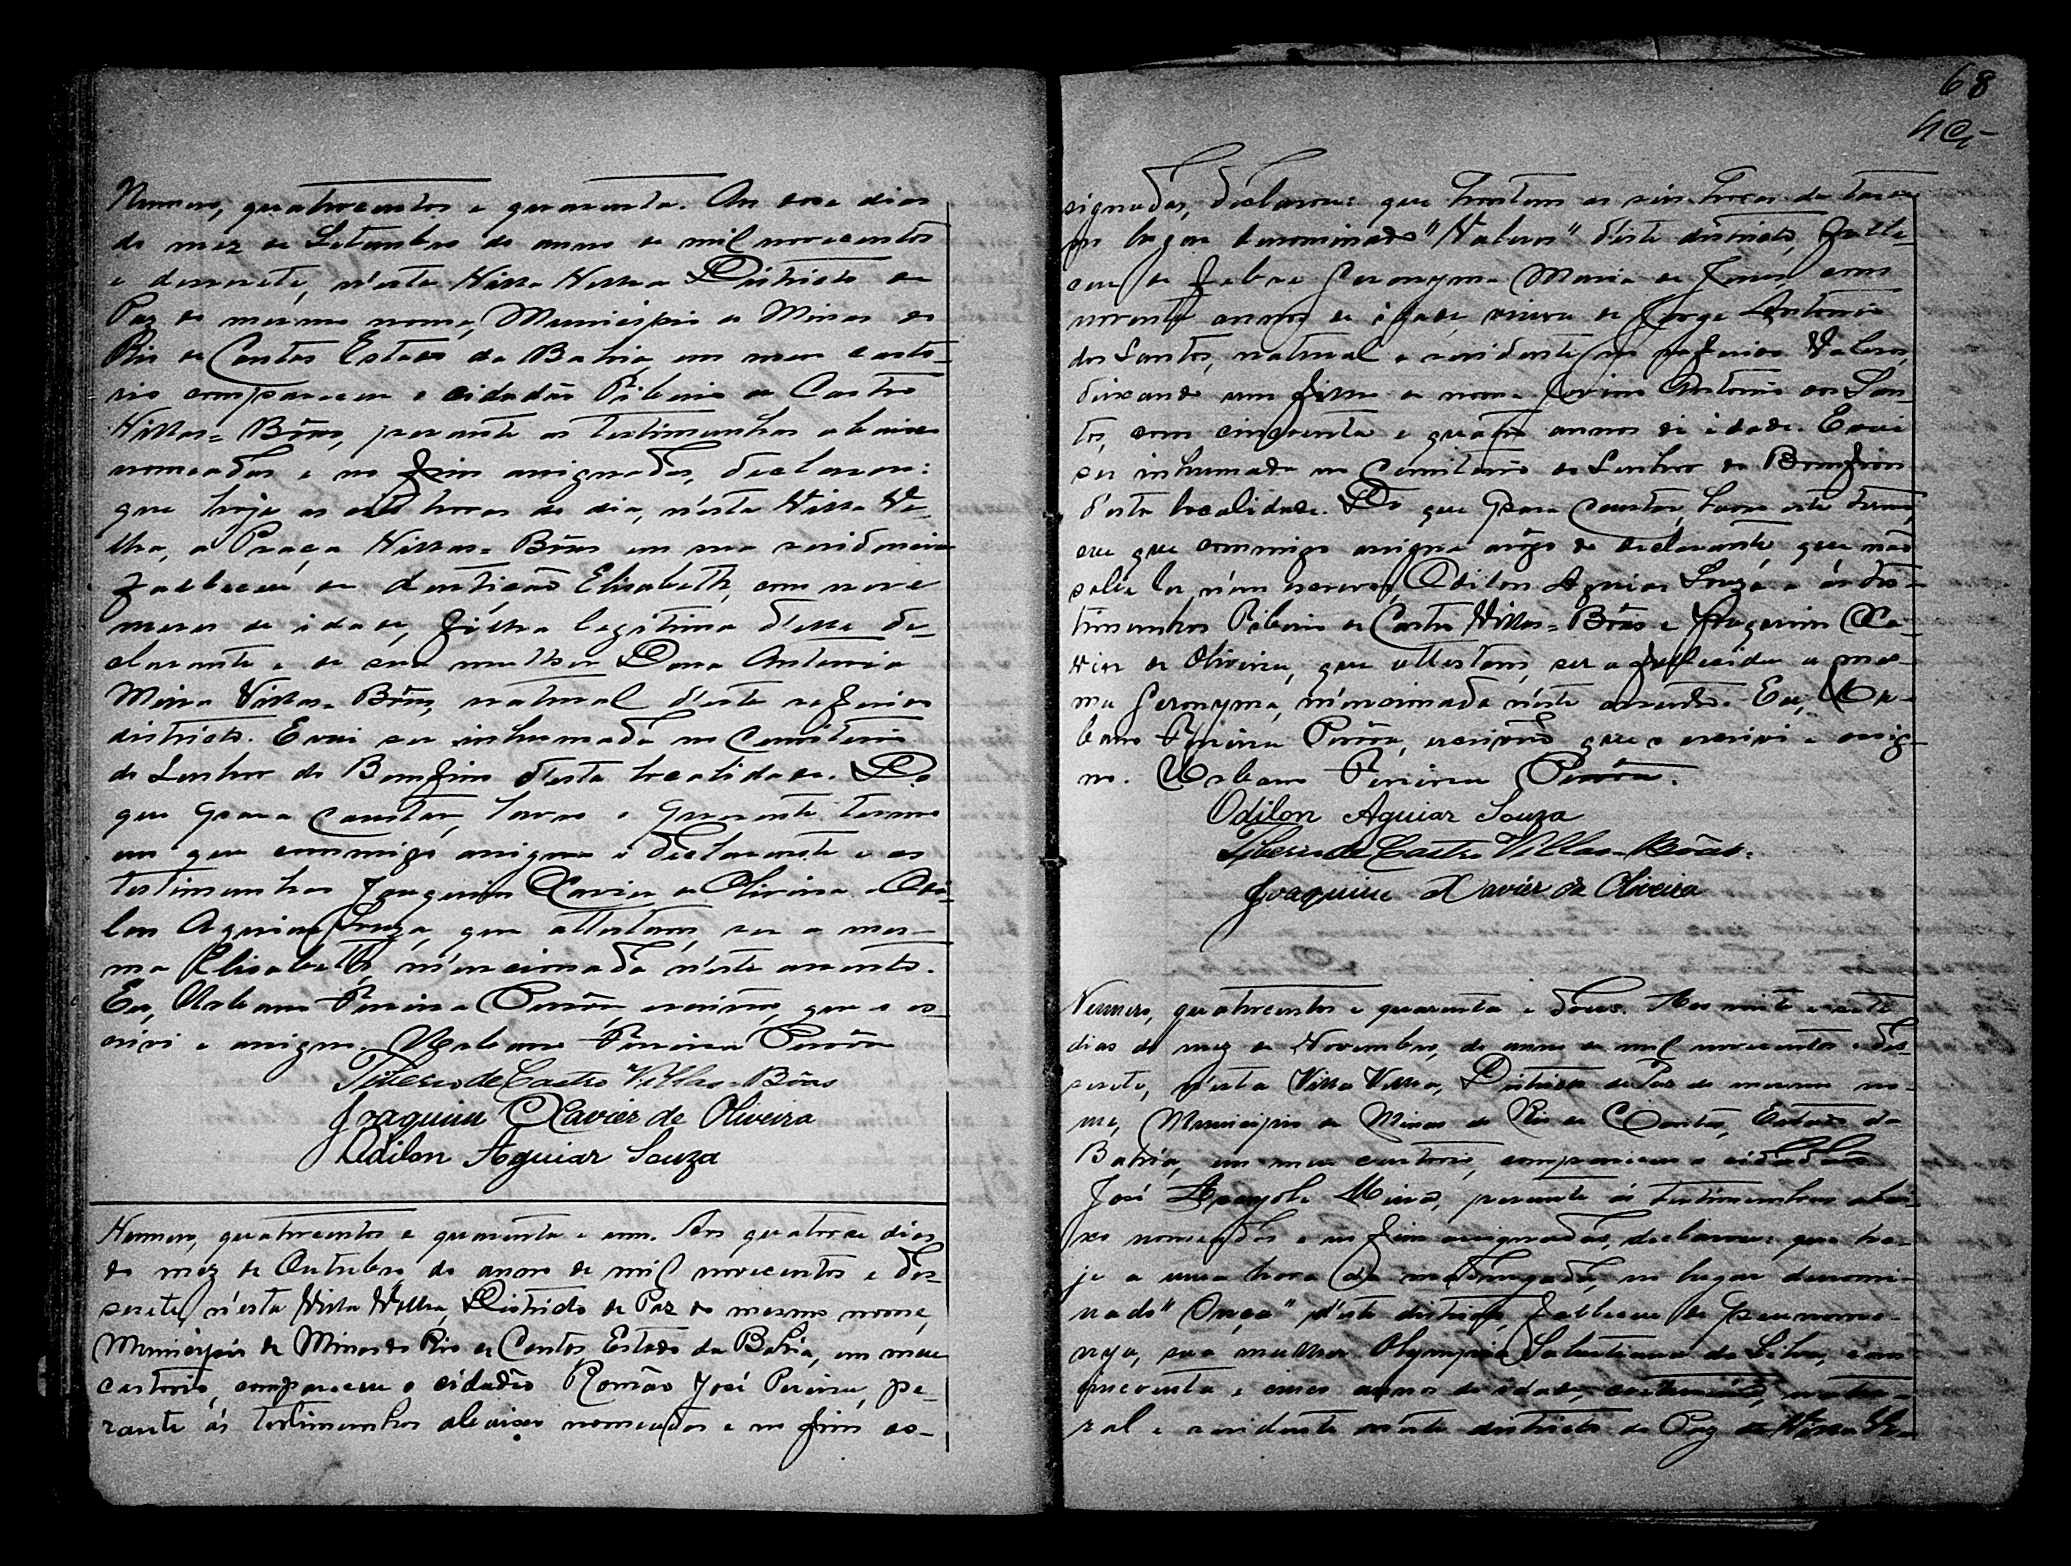 Numero, quatrocentos e quarenta. Aos dose dias
do mez de Setembro do anno de mil novecentos
e desesete, n'esta Villa Velha Districto de
Paz do mesmo nome, Municipio de Minas do
Rio de Contas Estado da Bahia, em meu carto-
rio compareceu o cidadão Tiberio de Castro
Villas=Bôas, perante as testimunhas abaixo
nomeadas e no fim assignadas, declarou:
que hoje as oito horas do dia, n'esta Villa Ve-
lha, a Praça Villas=Bôas em sua residencia
falleceu de dentição Elisabeth, com nove
meses de idade, filha legitima d'elle de-
clarante e de sua mulher Dona Antonia
Meira Villas-Bôas, natural d'este referido
districto. E vai ser inhumada no Cemiterio
do Senhor do Bomfim d'esta localidade. Do
que para constar, lavro o presente termo
em que commigo assigna o declarante e as
testimunhas Joaquim Xavier de Oliveira e Odi-
lon Aguiar Souza, que attestam, ser a mes-
ma Elisabeth, mencionada n'este assento.
Eu, Urbano Pereira escrivão, que o es-
crivi e assigno. Urbano Pereira
Tiberio de Castro Villas-Bôas
Joaquim Xavier de Oliveira
Odilon Aguiar Souza
Numero, quatrocentos e quarenta e um. Aos quatorse dias
do mez de Outubro do anno de mil novecentos e des-
sesete, n'esta Villa Velha, Districto de Paz do mesmo nome,
Municipio de Minas do Rio de Contas Estado da Bahia, em meu
cartorio, compareceu o cidadão Romão José Pereira, pe-
rante ás testimunhas abaixo nomeadas e no fim as-
68
signadas, declarou: que hontem as seis horas da tarde
no lugar denominado "Valeros" d'este districto, falle-
ceu de febre Jeronyma Maria de Jesus, com
noventa annos de idade, viuva de Jorge Antonio
dos Santos, natural e residente no referido Valeros,
deixando um filho de nome Antonio dos San-
tos, com cincoenta e quatro annos de idade. E vai
ser inhumada no Cemiterio do Senhor do Bomfim
d'esta localidade. Do que para constar, lavro este termo,
em que commigo assigna a rôgo do declarante que não
sabe ler, nem escrever, Odilon Aguiar Souza e ás tes-
timunhas Tiberio de Castro Villas=Bôas e Joaquim Xa-
vier de Oliveira, que attestam, ser a fallecida a mes-
ma Jeronyma, mencionada n'este assento. Eu, Ur-
bano Pereira escrivão que o escrivi e assig-
no. Urbano Pereira
Odilon Aguiar Souza
Tiberio de Castro Villas-Bôas.
Joaquim Xavier de Oliveira
Numero, quatrocentos e quarenta e dous. Aos vinte e sete
dias do mez de Novembro, do anno de mil novecentos e des-
sesete, n'esta Villa Velha, Districto de Paz do mesmo no-
me, Municipio de Minas do Rio de Contas, Estado da
Bahia, em meu cartorio, compareceu o cidadão
José Meira, perante ás testimunhas abai-
xo nomeadas e no fim assignadas, declarou: que ho-
je a uma hora da madrugada, no lugar denomi-
nado "Onça" d'este districto, falleceu de pneumo-
nya, sua mulher Olympia Salustiana da Silva, com
cincoenta e cinco annos de idade, natu-
ral e residente n'este districto de Paz de Villa Ve-